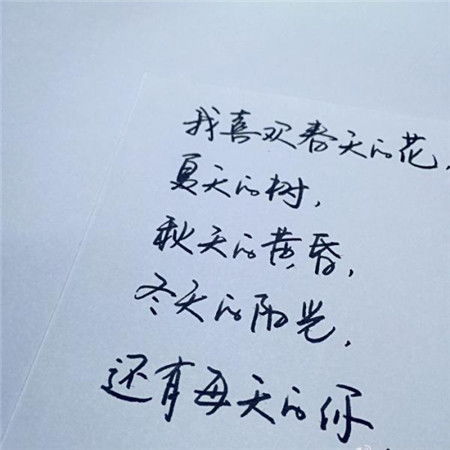 我喜欢春天的花,
夏天的树,
秋天的黄昏,
冬天的阳光,
还有每天的你